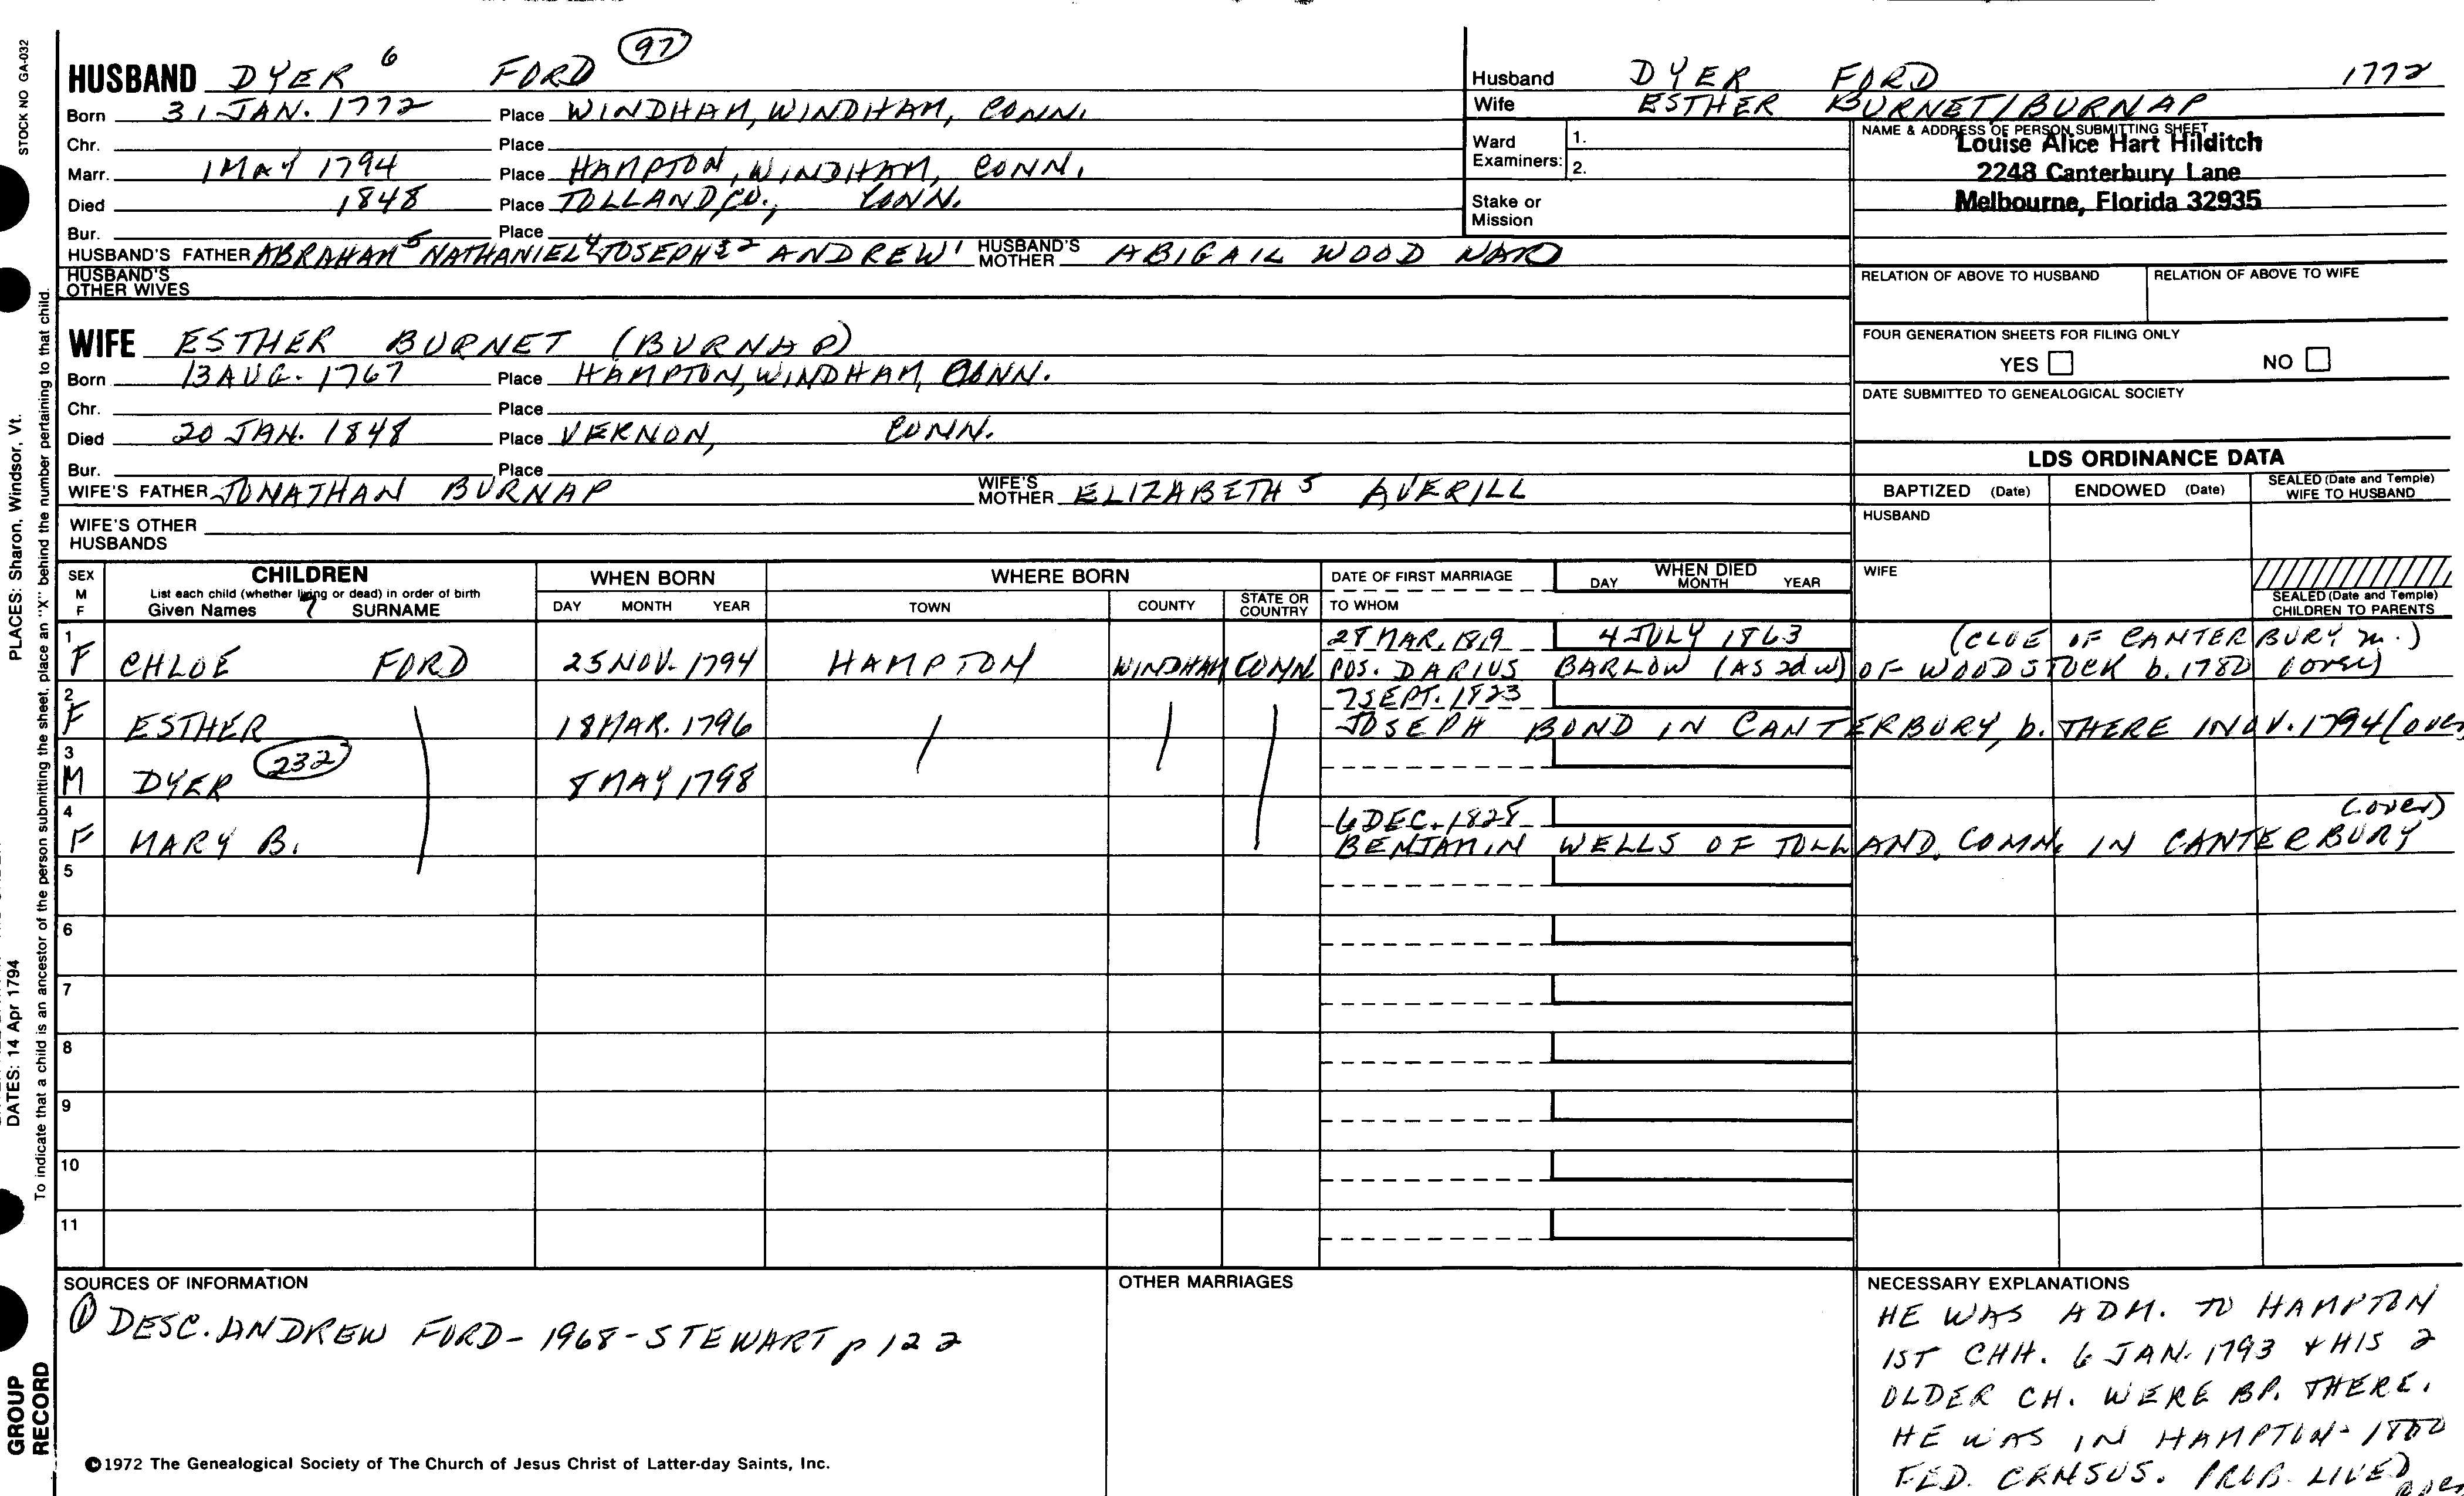 STOCK NO GA-032
HUSBAND DYER 6 FORD 97
Born 31 JAN. 1772 Place WINDHAM, WINDHAM, CONN.
Chr. Place
Marr. 1 MAY 1794 Place HAMPTON, WINDHAM, CONN.
Died 1848 Place TOLLAND CO., CONN.
Bur. Place
HUSBAND'S FATHER ABRAHAM 5 NATHANIEL 4 JOSEPH 3 2 ANDREW 1 HUSBAND'S MOTHER ABIGAIL WOOD WARD
HUSBAND'S OTHER WIVES
Husband DYER FORD 1772
Wife ESTHER BURNET/BURNAP
Ward Examiners: 1.
2.
Stake or Mission
NAME & ADDRESS OF PERSON SUBMITTING SHEET
Louise Alice Hart Hilditch
2248 Canterbury Lane
Melbourne, Florida 32935
RELATION OF ABOVE TO HUSBAND RELATION OF ABOVE TO WIFE
FOUR GENERATION SHEETS FOR FILING ONLY
YES NO
DATE SUBMITTED TO GENEALOGICAL SOCIETY
WIFE ESTHER BURNET (BURNAP)
Born 13 AUG. 1767 Place HAMPTON, WINDHAM, CONN.
Chr. Place
Died 20 JAN. 1848 Place VERNON, CONN.
Bur. Place
WIFE'S FATHER JONATHAN BURNAP WIFE'S MOTHER ELIZABETH 5 AVERILL
WIFE'S OTHER HUSBANDS
LDS ORDINANCE DATA
BAPTIZED (Date) ENDOWED (Date) SEALED (Date and Temple) WIFE TO HUSBAND
HUSBAND
WIFE
SEALED (Date and Temple) CHILDREN TO PARENTS
SEX M F
CHILDREN
List each child (whether living or dead) in order of birth
Given Names 7 SURNAME
WHEN BORN
DAY MONTH YEAR
WHERE BORN
TOWN COUNTY STATE OR COUNTRY
DATE OF FIRST MARRIAGE
TO WHOM
WHEN DIED
DAY MONTH YEAR
28 MAR. 1819 4 JULY 1863 (CLOE OF CANTERBURY m.)
1 F CHLOE FORD 25 NOV. 1794 HAMPTON WINDHAM CONN. POS. DARIUS BARLOW (AS 2d W) OF WOODSTOCK b. 1780 (over)
7 SEPT. 1823
2 F ESTHER 18 MAR. 1796 JOSEPH BOND IN CANTERBURY, b. THERE 1 NOV. 1794 (over
3 M DYER 232 8 MAY 1798
6 DEC. 1828 (over)
4 F MARY B. BENJAMIN WELLS OF TOLLAND, CONN. IN CANTERBURY
5
6
7
8
9
10
11
SOURCES OF INFORMATION
① DESC. ANDREW FORD - 1968 - STEWART p 122
©1972 The Genealogical Society of The Church of Jesus Christ of Latter-day Saints, Inc.
OTHER MARRIAGES
NECESSARY EXPLANATIONS
HE WAS ADM. TO HAMPTON
1ST CHH. 6 JAN. 1793 & HIS 2
OLDER CH. WERE BP. THERE.
HE WAS IN HAMPTON - 1800
FED. CENSUS. PROB. LIVED
over
PLACES: Sharon, Windsor, Vt.
DATES: 14 Apr 1794
To indicate that a child is an ancestor of the person submitting the sheet, place an "X" behind the number pertaining to that child.
GROUP
RECORD